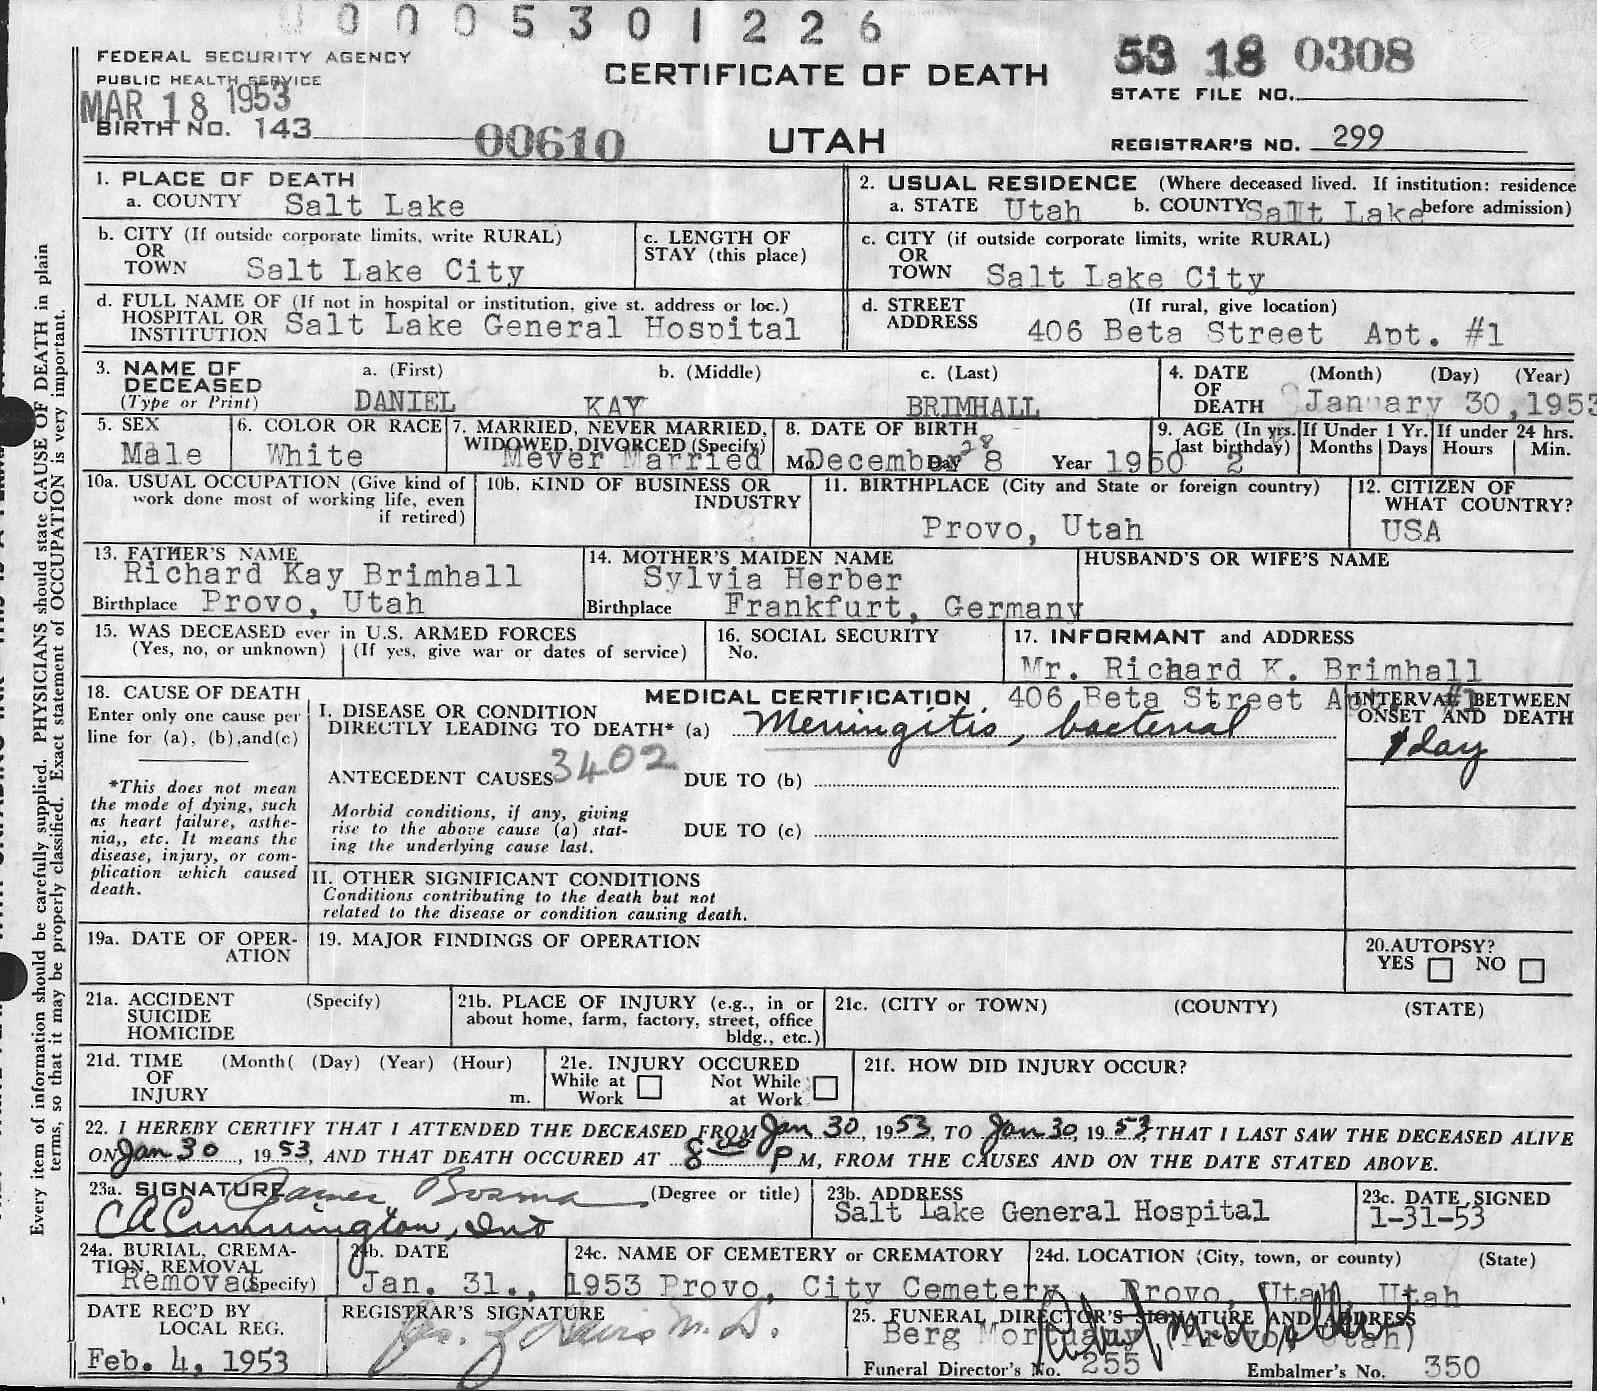 0 0 0 0 5 3 0 1 2 2 6
FEDERAL SECURITY AGENCY
PUBLIC HEALTH SERVICE
MAR 18 1953
BIRTH NO. 143
00610
CERTIFICATE OF DEATH
UTAH
53 18 0308
STATE FILE NO.
REGISTRAR'S NO. 299
1. PLACE OF DEATH
a. COUNTY Salt Lake
2. USUAL RESIDENCE (Where deceased lived. If institution: residence
a. STATE Utah b. COUNTY Salt Lake before admission)
b. CITY (If outside corporate limits, write RURAL)
OR
TOWN Salt Lake City
c. LENGTH OF
STAY (this place)
c. CITY (if outside corporate limits, write RURAL)
OR
TOWN Salt Lake City
d. FULL NAME OF (If not in hospital or institution, give st. address or loc.)
HOSPITAL OR
INSTITUTION Salt Lake General Hospital
d. STREET (If rural, give location)
ADDRESS 406 Beta Street Apt. #1
3. NAME OF
DECEASED
(Type or Print)
a. (First) b. (Middle) c. (Last)
DANIEL KAY BRIMHALL
4. DATE (Month) (Day) (Year)
OF
DEATH January 30, 1953
5. SEX
Male
6. COLOR OR RACE
White
7. MARRIED, NEVER MARRIED,
WIDOWED, DIVORCED (Specify)
Never Married
8. DATE OF BIRTH
28
Mo. December Day 8 Year 1950
9. AGE (In yrs.
last birthday)
2
If Under 1 Yr.
Months Days
If under 24 hrs.
Hours Min.
10a. USUAL OCCUPATION (Give kind of
work done most of working life, even
if retired)
10b. KIND OF BUSINESS OR
INDUSTRY
11. BIRTHPLACE (City and State or foreign country)
Provo, Utah
12. CITIZEN OF
WHAT COUNTRY?
USA
13. FATHER'S NAME
Richard Kay Brimhall
Birthplace Provo, Utah
14. MOTHER'S MAIDEN NAME
Sylvia Herber
Birthplace Frankfurt, Germany
HUSBAND'S OR WIFE'S NAME
15. WAS DECEASED ever in U.S. ARMED FORCES
(Yes, no, or unknown) (If yes, give war or dates of service)
16. SOCIAL SECURITY
No.
17. INFORMANT and ADDRESS
Mr. Richard K. Brimhall
406 Beta Street Apt #1
18. CAUSE OF DEATH
Enter only one cause per
line for (a), (b),and(c)
*This does not mean
the mode of dying, such
as heart failure, asthe-
nia,, etc. It means the
disease, injury, or com-
plication which caused
death.
MEDICAL CERTIFICATION
I. DISEASE OR CONDITION
DIRECTLY LEADING TO DEATH* (a) Meningitis, bacterial
INTERVAL BETWEEN
ONSET AND DEATH
1 day
ANTECEDENT CAUSES 3402
DUE TO (b)
Morbid conditions, if any, giving
rise to the above cause (a) stat-
ing the underlying cause last.
DUE TO (c)
II. OTHER SIGNIFICANT CONDITIONS
Conditions contributing to the death but not
related to the disease or condition causing death.
19a. DATE OF OPER-
ATION
19. MAJOR FINDINGS OF OPERATION
20.AUTOPSY?
YES NO
21a. ACCIDENT (Specify)
SUICIDE
HOMICIDE
21b. PLACE OF INJURY (e.g., in or
about home, farm, factory, street, office
bldg., etc.)
21c. (CITY or TOWN) (COUNTY) (STATE)
21d. TIME (Month( (Day) (Year) (Hour)
OF
INJURY m.
21e. INJURY OCCURED
While at
Work
Not While
at Work
21f. HOW DID INJURY OCCUR?
22. I HEREBY CERTIFY THAT I ATTENDED THE DECEASED FROM Jan 30, 1953, TO Jan 30, 1953, THAT I LAST SAW THE DECEASED ALIVE
ON Jan 30, 1953, AND THAT DEATH OCCURED AT 8 00 P.M, FROM THE CAUSES AND ON THE DATE STATED ABOVE.
23a. SIGNATURE James Bosma (Degree or title)
CA Cunnington, Int
23b. ADDRESS
Salt Lake General Hospital
23c. DATE SIGNED
1-31-53
24a. BURIAL, CREMA-
TION, REMOVAL
Removal (Specify)
24b. DATE
Jan. 31., 1953
24c. NAME OF CEMETERY or CREMATORY
Provo, City Cemetery
24d. LOCATION (City, town, or county) (State)
Provo, Utah, Utah
DATE REC'D BY
LOCAL REG.
Feb. 4, 1953
REGISTRAR'S SIGNATURE
25. FUNERAL DIRECTOR'S SIGNATURE AND ADDRESS
Berg Mortuary (Provo, Utah)
Funeral Director's No. 255 Embalmer's No. 350
Every item of information should be carefully supplied. PHYSICIANS should state CAUSE OF DEATH in plain
terms, so that it may be properly classified. Exact statement of OCCUPATION is very important.